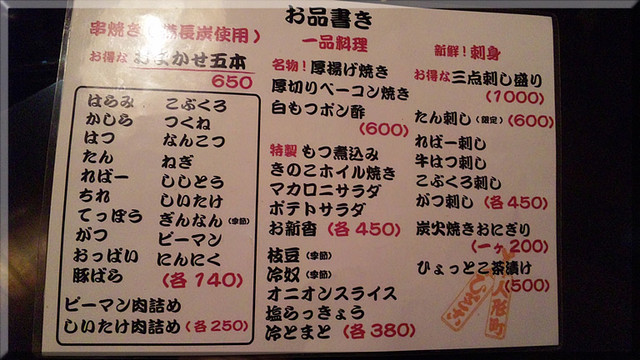 お品書き
串焼き(備長炭使用)
お得な おまかせ五本
650
はらみ
かしら
はつ
たん
ればー
ちれ
てっぽう
がつ
おっぱい
豚ばら
こぶくろ
つくね
なんこつ
ねぎ
ししとう
しいたけ
ぎんなん(季節)
ピーマン
にんにく
(各140)
ピーマン肉詰め
しいたけ肉詰め(各250)
一品料理
名物!厚揚げ焼き
厚切りベーコン焼き
白もつポン酢
(600)
特製 もつ煮込み
きのこホイル焼き
マカロニサラダ
ポテトサラダ
お新香(各450)
枝豆(季節)
冷奴(季節)
オニオンスライス
塩らっきょう
冷とまと(各380)
新鮮!刺身
お得な 三点刺し盛り
(1000)
たん刺し(限定)(600)
ればー刺し
牛はつ刺し
こぶくろ刺し
がつ刺し(各450)
炭火焼きおにぎり
(一ヶ200)
ひょっとこ茶漬け
(500)
人形町